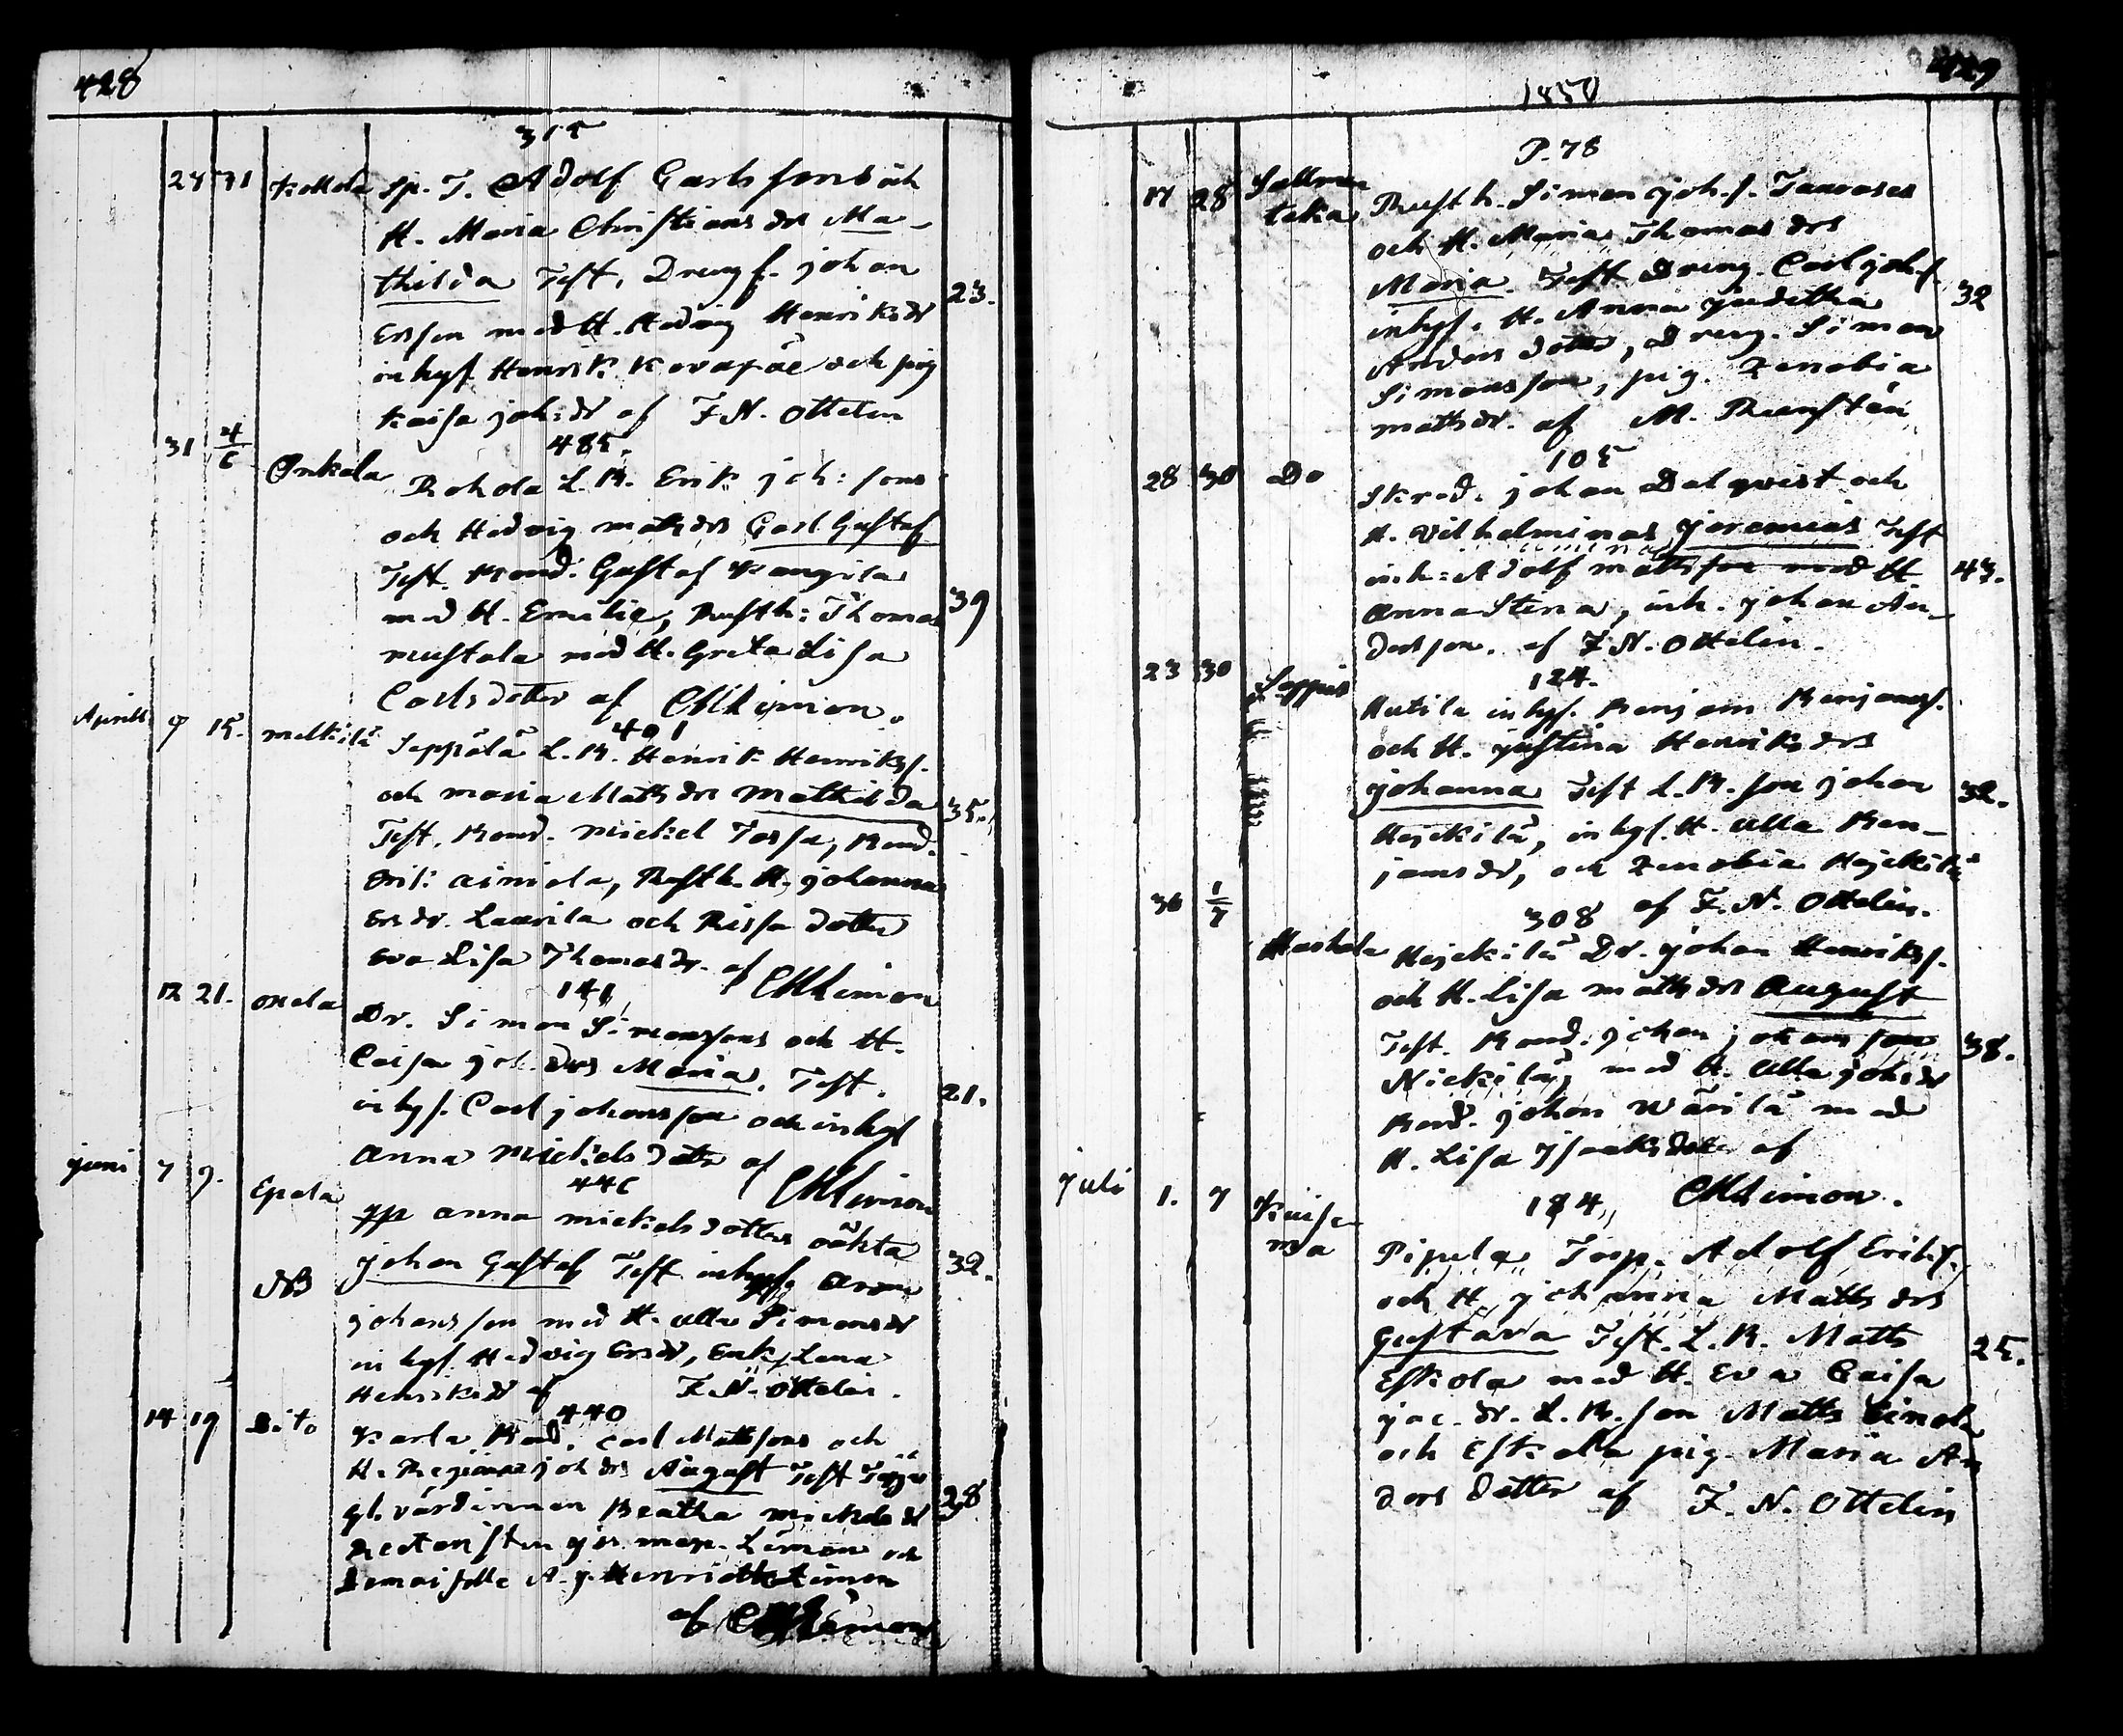 428
315
24 31 Kollola Sp. T. Adolf Carlssons och
H. Maria Christians dr Ma-
thilda Test. Drengf. johan
Ersson med H. Hedvig Henriksdr 23.
inhys Henrik och pig
Kaisa joh:dr af F. N. Ottelin
485.
31 4/6 Onkola Rohola L. B. Erik joh:sons
och Hedvig matsdrs Carl Gustaf
Test. Bond. Gustaf Kangila
med H. Emilie, Rusth: Thomas 39
mustola med H. Greta Lisa
Carlsdotter af Limon.
401
Aprill 9 15. melkilä Seppälä L. B. Henrik Henrikss.
och maria Matsdrs mathilda 35.
Test. Bond. mickel Tossa, Bond.
Erik aimola, Rusth. H. johanna
Ersdr. Laurila och Rissa dotter
Eva Lisa Thomasdr. af Limon
141
12 21. onela Dr. Simon Simonsons och H.
Caisa joh.drs Maria. Test.
inhys. Carl johansson och inhys 21.
anna mickels dotter af Limon
446
juni 7 9. Epola anna mickelsdotters oäkta
johan Gustaf Test. inhys. 32.
NB
johansson med H. ulla Simonsdr
inhys. Hedvig Ersdr, Enk. Lena
Henriksdr af F. N. Ottelin.
440
14 19 Dito Karla Bond. Carl Matssons och
H. Regina joh drs August Test
gl. värdinnan Beatha mickelsdr 28
Limon och
Demoiselle A. j. Henriette Limon
af Limon
429
1850
P. 78
17 28 Sallmentaka Rusth. Simon joh.s.
och H. Maria Thomas drs
Maria. Test Dreng. Carl joh.s. 32
inhys. H. Anna juditha
Anders dotter, Dreng. Simon
Simonsson, pig. Zenobia
matsdr. af M. Runstén
105
28 30 Do Skred. johan Dalqvist och
H. Vilhelminas jeremias Test
inh: Adolf mattsson med H. 43.
anna Stina, inh. johan An-
dersson. af F. N. Ottelin.
124.
23 30 Loppis Hutila inhys. Benjam Benjams.
och H. justina Henriksdrs
johanna Test L. B. son johan 32.
Hejekilä, inhys. H. ulla Ben-
jamsdr, och Zenobia Hejekilä
af F. N. Ottelin.
308
36 1/7 Haskola Hejekilä Dr. johan Henrikss.
och H. Lisa mattsdrs August
Test. Bond. johan johansson 38.
Nickilä, med H. Ulla johsdr
Bond. johan Wärilä med
H. Lisa Isaksdotter af
Limon.
184
juli 1. 7 Kuisema Pipola Torp. Adolf Eriks.
och H. johanna Matts drs
Gustava Test. L. B. Matts 25.
Eskola med H. Eva Caisa
jac. dr. L. B. son Matts
och Eskola pig. Maria An
ders dotter af F. N. Ottelin